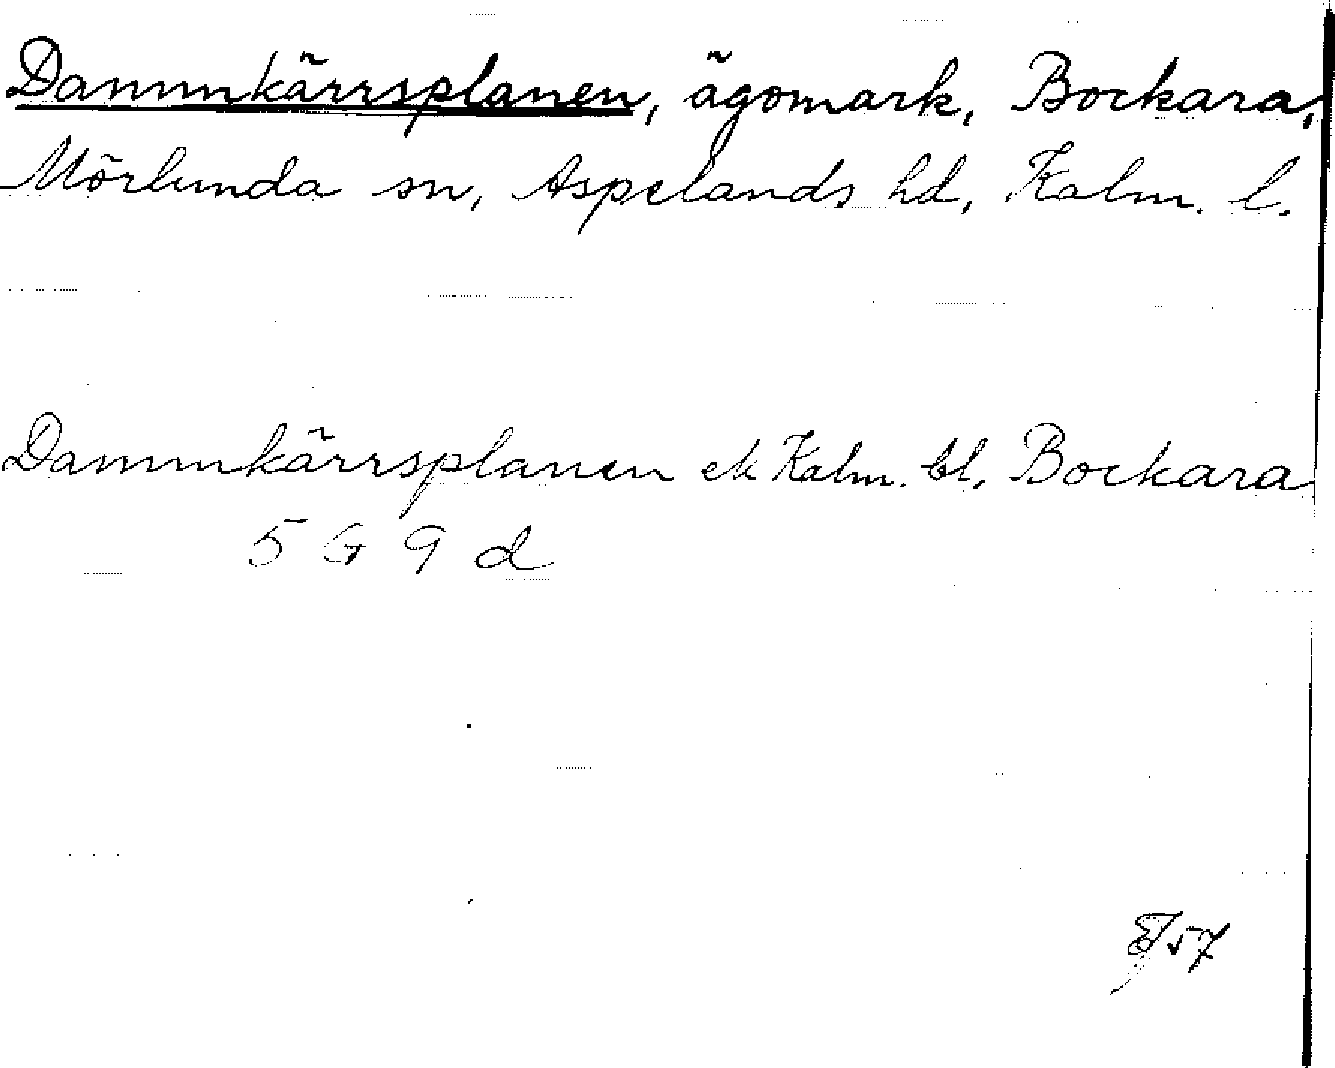 Dammkärrsplanen, ägomark, Bockara,
Mörlunda sn, Aspelands hd, Kalm. l.
Dammkärrsplanen ek Kalm. bl, Bockara
5 G 9 d
57